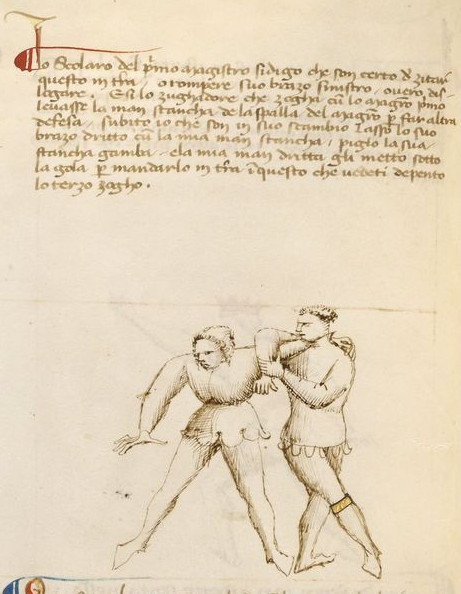 Io Scolaro del p̃mo magistro si digo che son certo d̃ zitar
questo in tr̃a, o rompere suo brazo sinistro, overo dis-
logare. E si lo zughadore che zogha cũ lo magr̃o p̃mo
levasse la man stancha de la spalla del magr̃o p̱ fur altra
defesa, subito io che son in suo scambio lasso lo suo
brazo dritto cũ la mia man stancha, e piglo la sua
stancha gamba, e la mia man dritta gli metto sotto
la gola p̱ mandarlo in tr̃a ĩ questo che vedeti depento
lo terzo zogho.